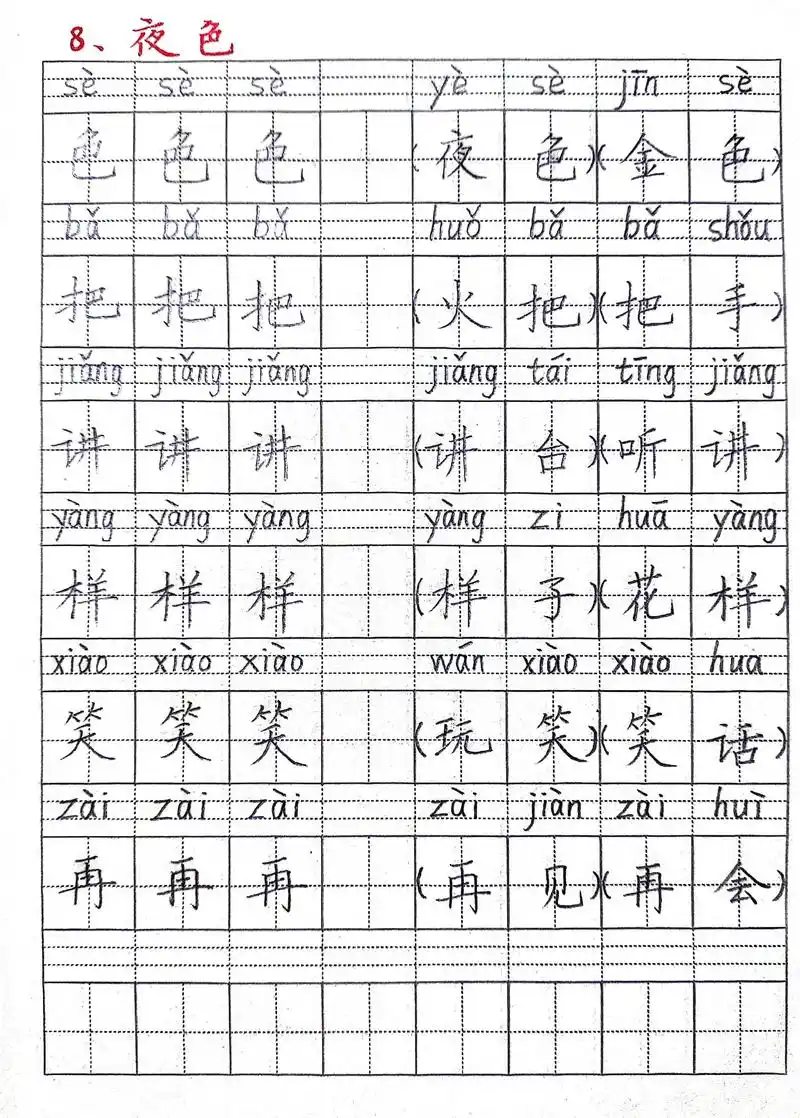 8、夜色
sè sè sè yè sè jīn sè
色 色 色 (夜 色)(金 色)
bǎ bǎ bǎ huǒ bǎ bǎ shǒu
把 把 把 (火 把)(把 手)
jiǎng jiǎng jiǎng jiǎng tái tīng jiǎng
讲 讲 讲 (讲 台)(听 讲)
yàng yàng yàng yàng zi huā yàng
样 样 样 (样 子)(花 样)
xiào xiào xiào wán xiào xiào hua
笑 笑 笑 (玩 笑)(笑 话)
zài zài zài zài jiàn zài huì
再 再 再 (再 见)(再 会)